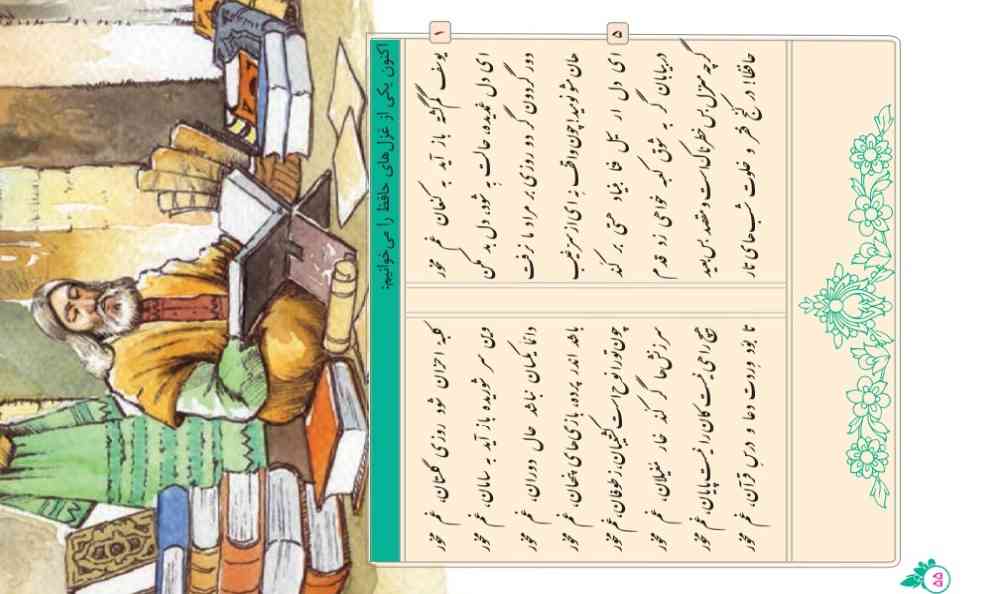 اکنون یکی از غزل‌های حافظ را می‌خوانیم:
۱ یوسف گم‌گشته باز آید به کنعان غم مخور کلبه احزان شود روزی گلستان، غم مخور
ای دل غمدیده، حالت به شود، دل بد مکن وین سر شوریده باز آید به سامان، غم مخور
دور گردون گر دو روزی بر مراد ما نرفت دائما یکسان نباشد حال دوران، غم مخور
هان مشو نومید! چون واقف نه‌ای از سر غیب باشد اندر پرده، بازی‌های پنهان، غم مخور
۵ ای دل ار سیل فنا بنیاد هستی بر کند چون تو را نوح است کشتیبان، ز طوفان، غم مخور
در بیابان گر به شوق کعبه خواهی زد قدم سرزنش‌ها گر کند خار مغیلان، غم مخور
گرچه منزل بس خطرناک است و مقصد بس بعید هیچ راهی نیست کان را نیست پایان، غم مخور
حافظا! در کنج فقر و خلوت شب‌های تار تا بود وردت دعا و درس قرآن، غم مخور
۵۵